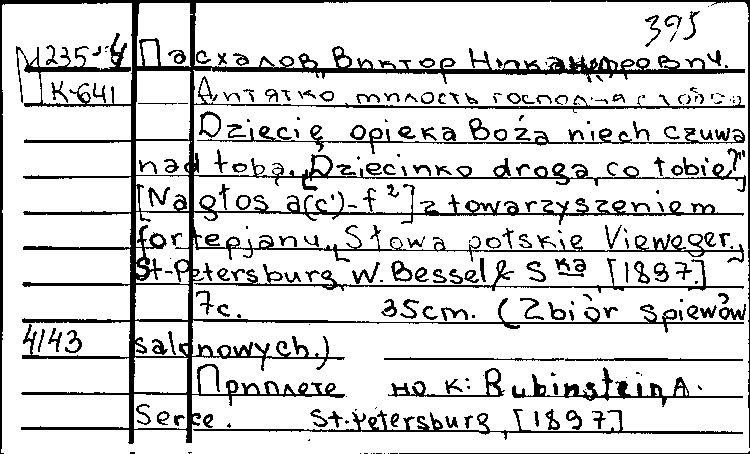 395
М235-4 Пасхалов, Виктор Никандрович.
К-641 Дитятко, милость господня с тобою
Dziecię opieka Boża niech czuwa
nad tobą. „Dziecinko droga, co tobie?"
[Na głos a(c')-f²] z towarzyszeniem
fortepjanu. [Słowa polskie Vieweger.]
St-Petersburg, W. Bessel & Ska, [1897.]
7c. 35cm. (Zbiór spiewów
4143 salonowych.)
Приплете но к: Rubinstein, A.
Serce. St-Petersburg, [1897.]